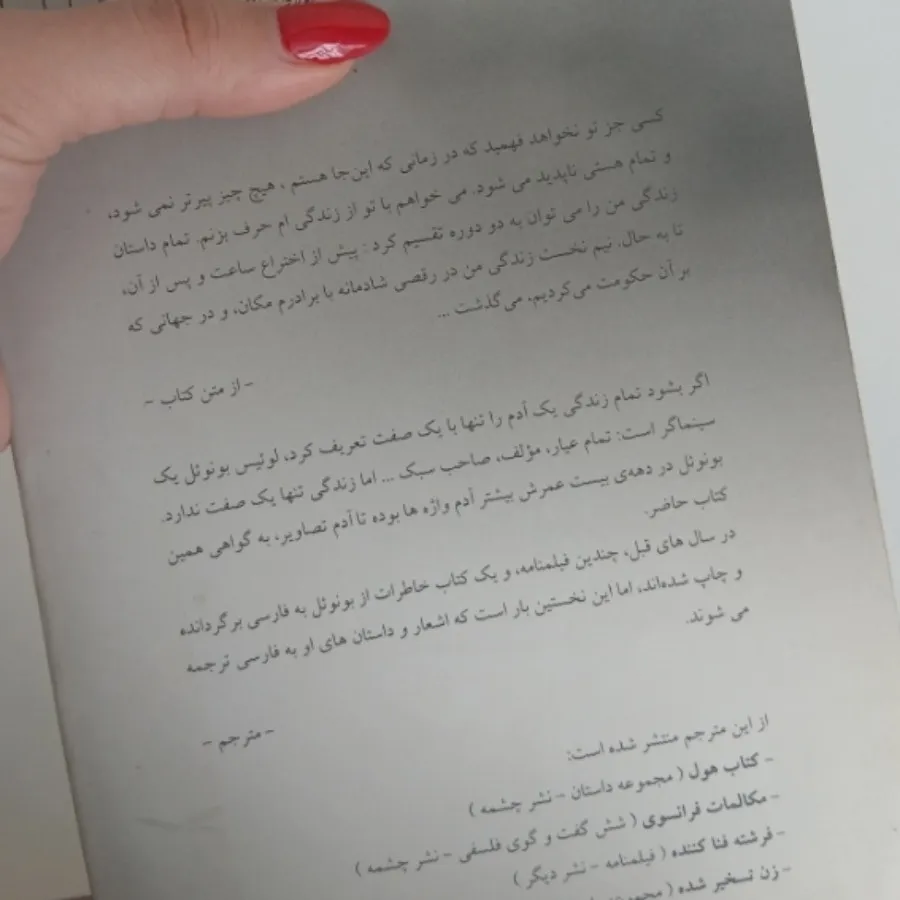 کسی جز تو نخواهد فهمید که در زمانی که این‌جا هستم ، هیچ چیز پیرتر نمی شود،
و تمام هستی ناپدید می شود. می خواهم با تو از زندگی ام حرف بزنم. تمام داستان
زندگی من را می توان به دو دوره تقسیم کرد : پیش از اختراع ساعت و پس از آن،
تا به حال. نیم نخست زندگی من در رقصی شادمانه با برادرم مکان، و در جهانی که
بر آن حکومت می‌کردیم، می‌گذشت ...
- از متن کتاب -
اگر بشود تمام زندگی یک آدم را تنها با یک صفت تعریف کرد، لوئیس بونوئل یک
سینماگر است: تمام عیار، مؤلف، صاحب سبک ... اما زندگی تنها یک صفت ندارد.
بونوئل در دهه‌ی بیست عمرش بیشتر آدم واژه ها بوده تا آدم تصاویر، به گواهی همین
کتاب حاضر.
در سال های قبل، چندین فیلمنامه، و یک کتاب خاطرات از بونوئل به فارسی برگردانده
و چاپ شده‌اند، اما این نخستین بار است که اشعار و داستان های او به فارسی ترجمه
می شوند.
- مترجم -
از این مترجم منتشر شده است:
- کتاب هول ( مجموعه داستان - نشر چشمه )
- مکالمات فرانسوی ( شش گفت و گوی فلسفی - نشر چشمه )
- فرشته فنا کننده ( فیلمنامه - نشر دیگر )
- زن تسخیر شده (